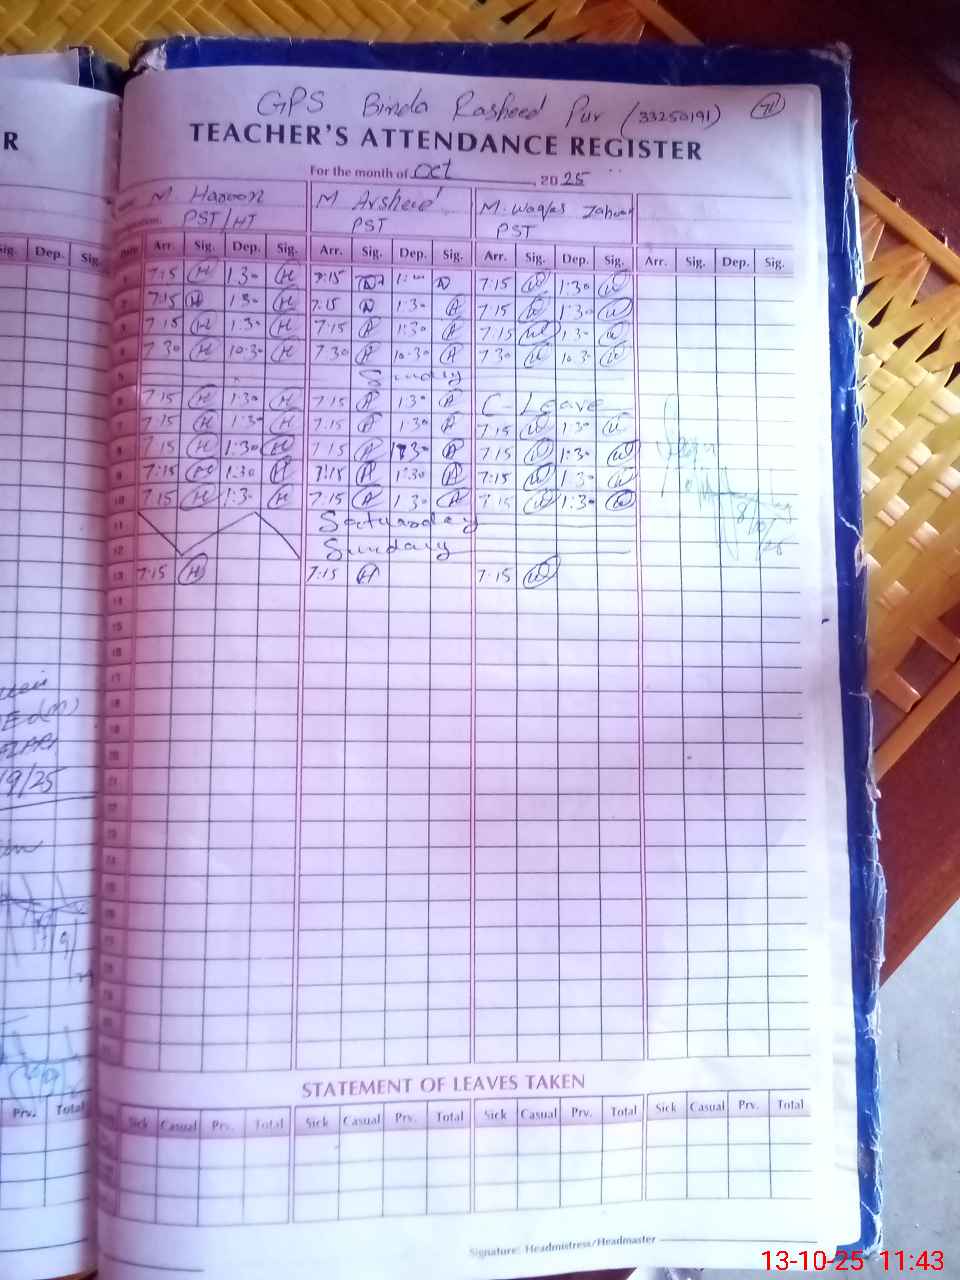 GPS Binda Rasheed Pur (33250191) 71
TEACHER'S ATTENDANCE REGISTER
For the month of Oct, 2025
M. Haroon M Arshed M. Waqas Zahoor
PST/HT PST PST
Date Arr. Sig. Dep. Sig. Arr. Sig. Dep. Sig. Arr. Sig. Dep. Sig. Arr. Sig. Dep. Sig.
1 7:15 H 1:30 H 7:15 1:30 7:15 W 1:30 W
2 7:15 H 1:30 H 7:15 1:30 A 7:15 W 1:30 W
3 7:15 H 1:30 H 7:15 A 1:30 A 7:15 W 1:30 W
4 7:30 H 10:30 H 7:30 A 10:30 A 7:30 W 10:30 W
5 Sunday
6 7:15 H 1:30 H 7:15 A 1:30 A C-Leave
7 7:15 H 1:30 H 7:15 A 1:30 A 7:15 W 1:30 W
8 7:15 H 1:30 H 7:15 A 1:30 A 7:15 W 1:30 W
9 7:15 H 1:30 H 7:15 A 1:30 A 7:15 W 1:30 W
10 7:15 H 1:30 H 7:15 A 1:30 A 7:15 W 1:30 W
11 Saturday
12 Sunday
13 7:15 H 7:15 A 7:15 W
14
15
16
17
18
19
20
21
22
23
24
STATEMENT OF LEAVES TAKEN
Sick Casual Prv. Total Sick Casual Prv. Total Sick Casual Prv. Total Sick Casual Prv. Total
Signature: Headmistress/Headmaster
R
Sig. Dep. Sig.
19/25
Prv. Total
13-10-25 11:43